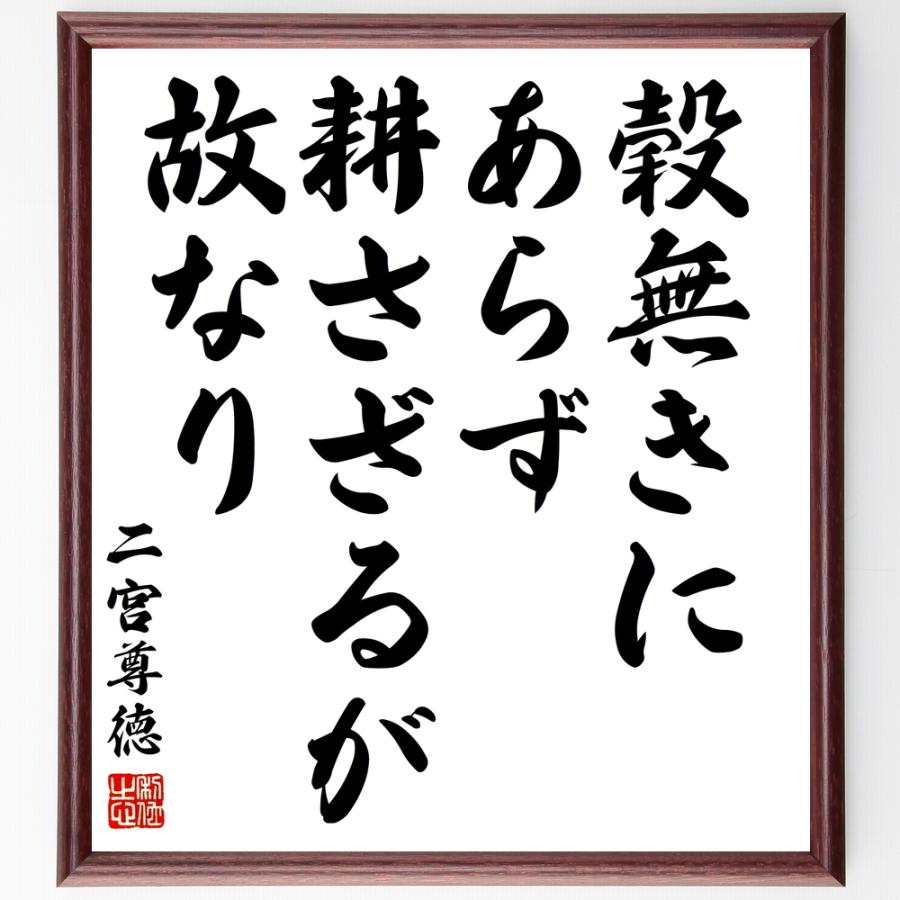 穀無きに
あらず
耕さざるが
故なり
二宮尊徳